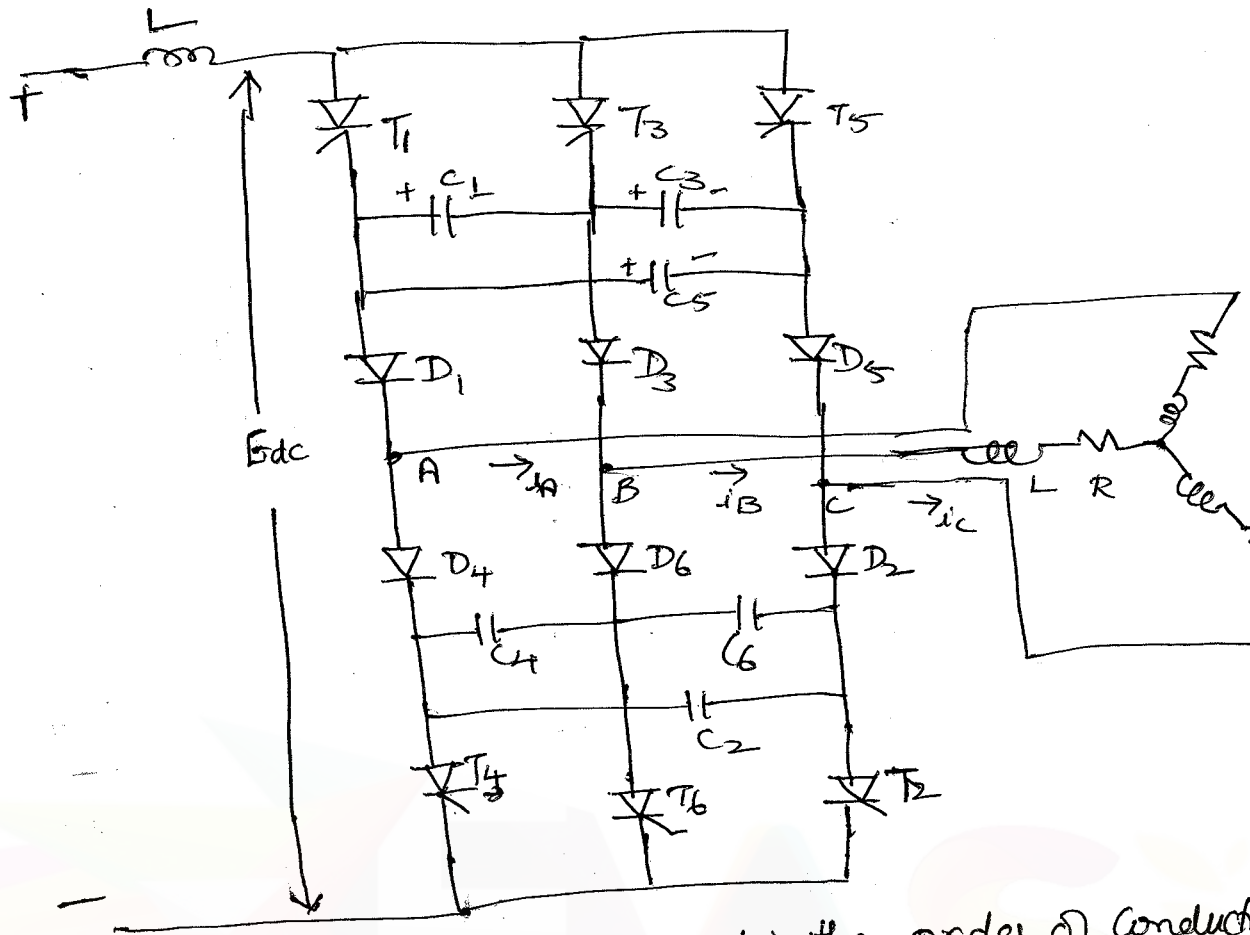 L
+
T1
T3
T5
+ C1
+ C3 -
+ C5 -
D1
D3
D5
Edc
A
iA
B
iB
C
iC
L R
D4
D6
D2
C4
C6
C2
T4
T6
T2
-
the order of Conduct